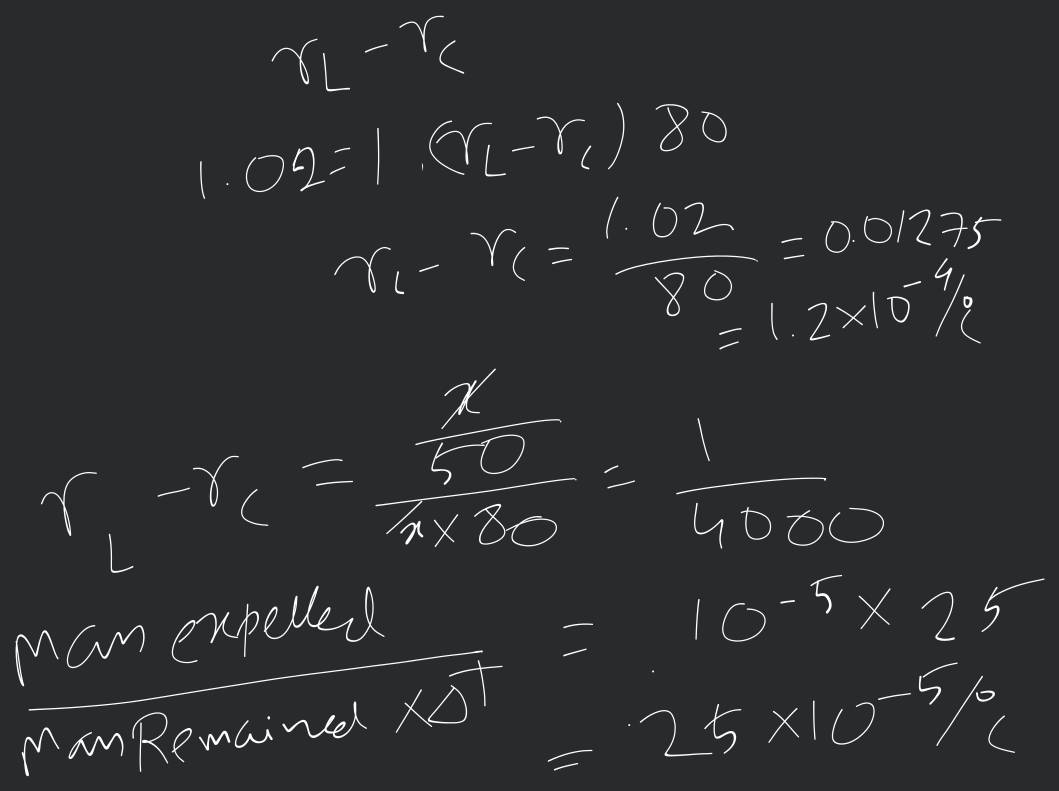 γL - γc
1.02 = 1 . (γL - γc) 80
γL - γc = 1.02/80 = 0.01275
= 1.2×10^-4/°c
γL - γc = (x/50)/(x×80) = 1/4000
Mass expelled / Mass Remained × ΔT = 10^-5 × 25
= 25 × 10^-5/°c